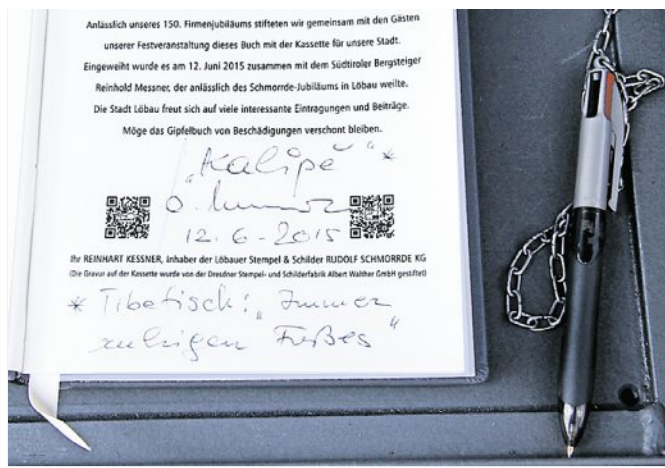 Anlässlich unseres 150. Firmenjubiläums stifteten wir gemeinsam mit den Gästen
unserer Festveranstaltung dieses Buch mit der Kassette für unsere Stadt.
Eingeweiht wurde es am 12. Juni 2015 zusammen mit dem Südtiroler Bergsteiger
Reinhold Messner, der anlässlich des Schmorrde-Jubiläums in Löbau weilte.
Die Stadt Löbau freut sich auf viele interessante Eintragungen und Beiträge.
Möge das Gipfelbuch von Beschädigungen verschont bleiben.
„Kalipè“ *
12.6-2015
Ihr REINHART KESSNER, Inhaber der Löbauer Stempel & Schilder RUDOLF SCHMORRDE KG
(Die Gravur auf der Kassette wurde von der Dresdner Stempel- und Schilderfabrik Albert Walther GmbH gestiftet)
* Tibetisch: „Immer
ruhigen Fußes“